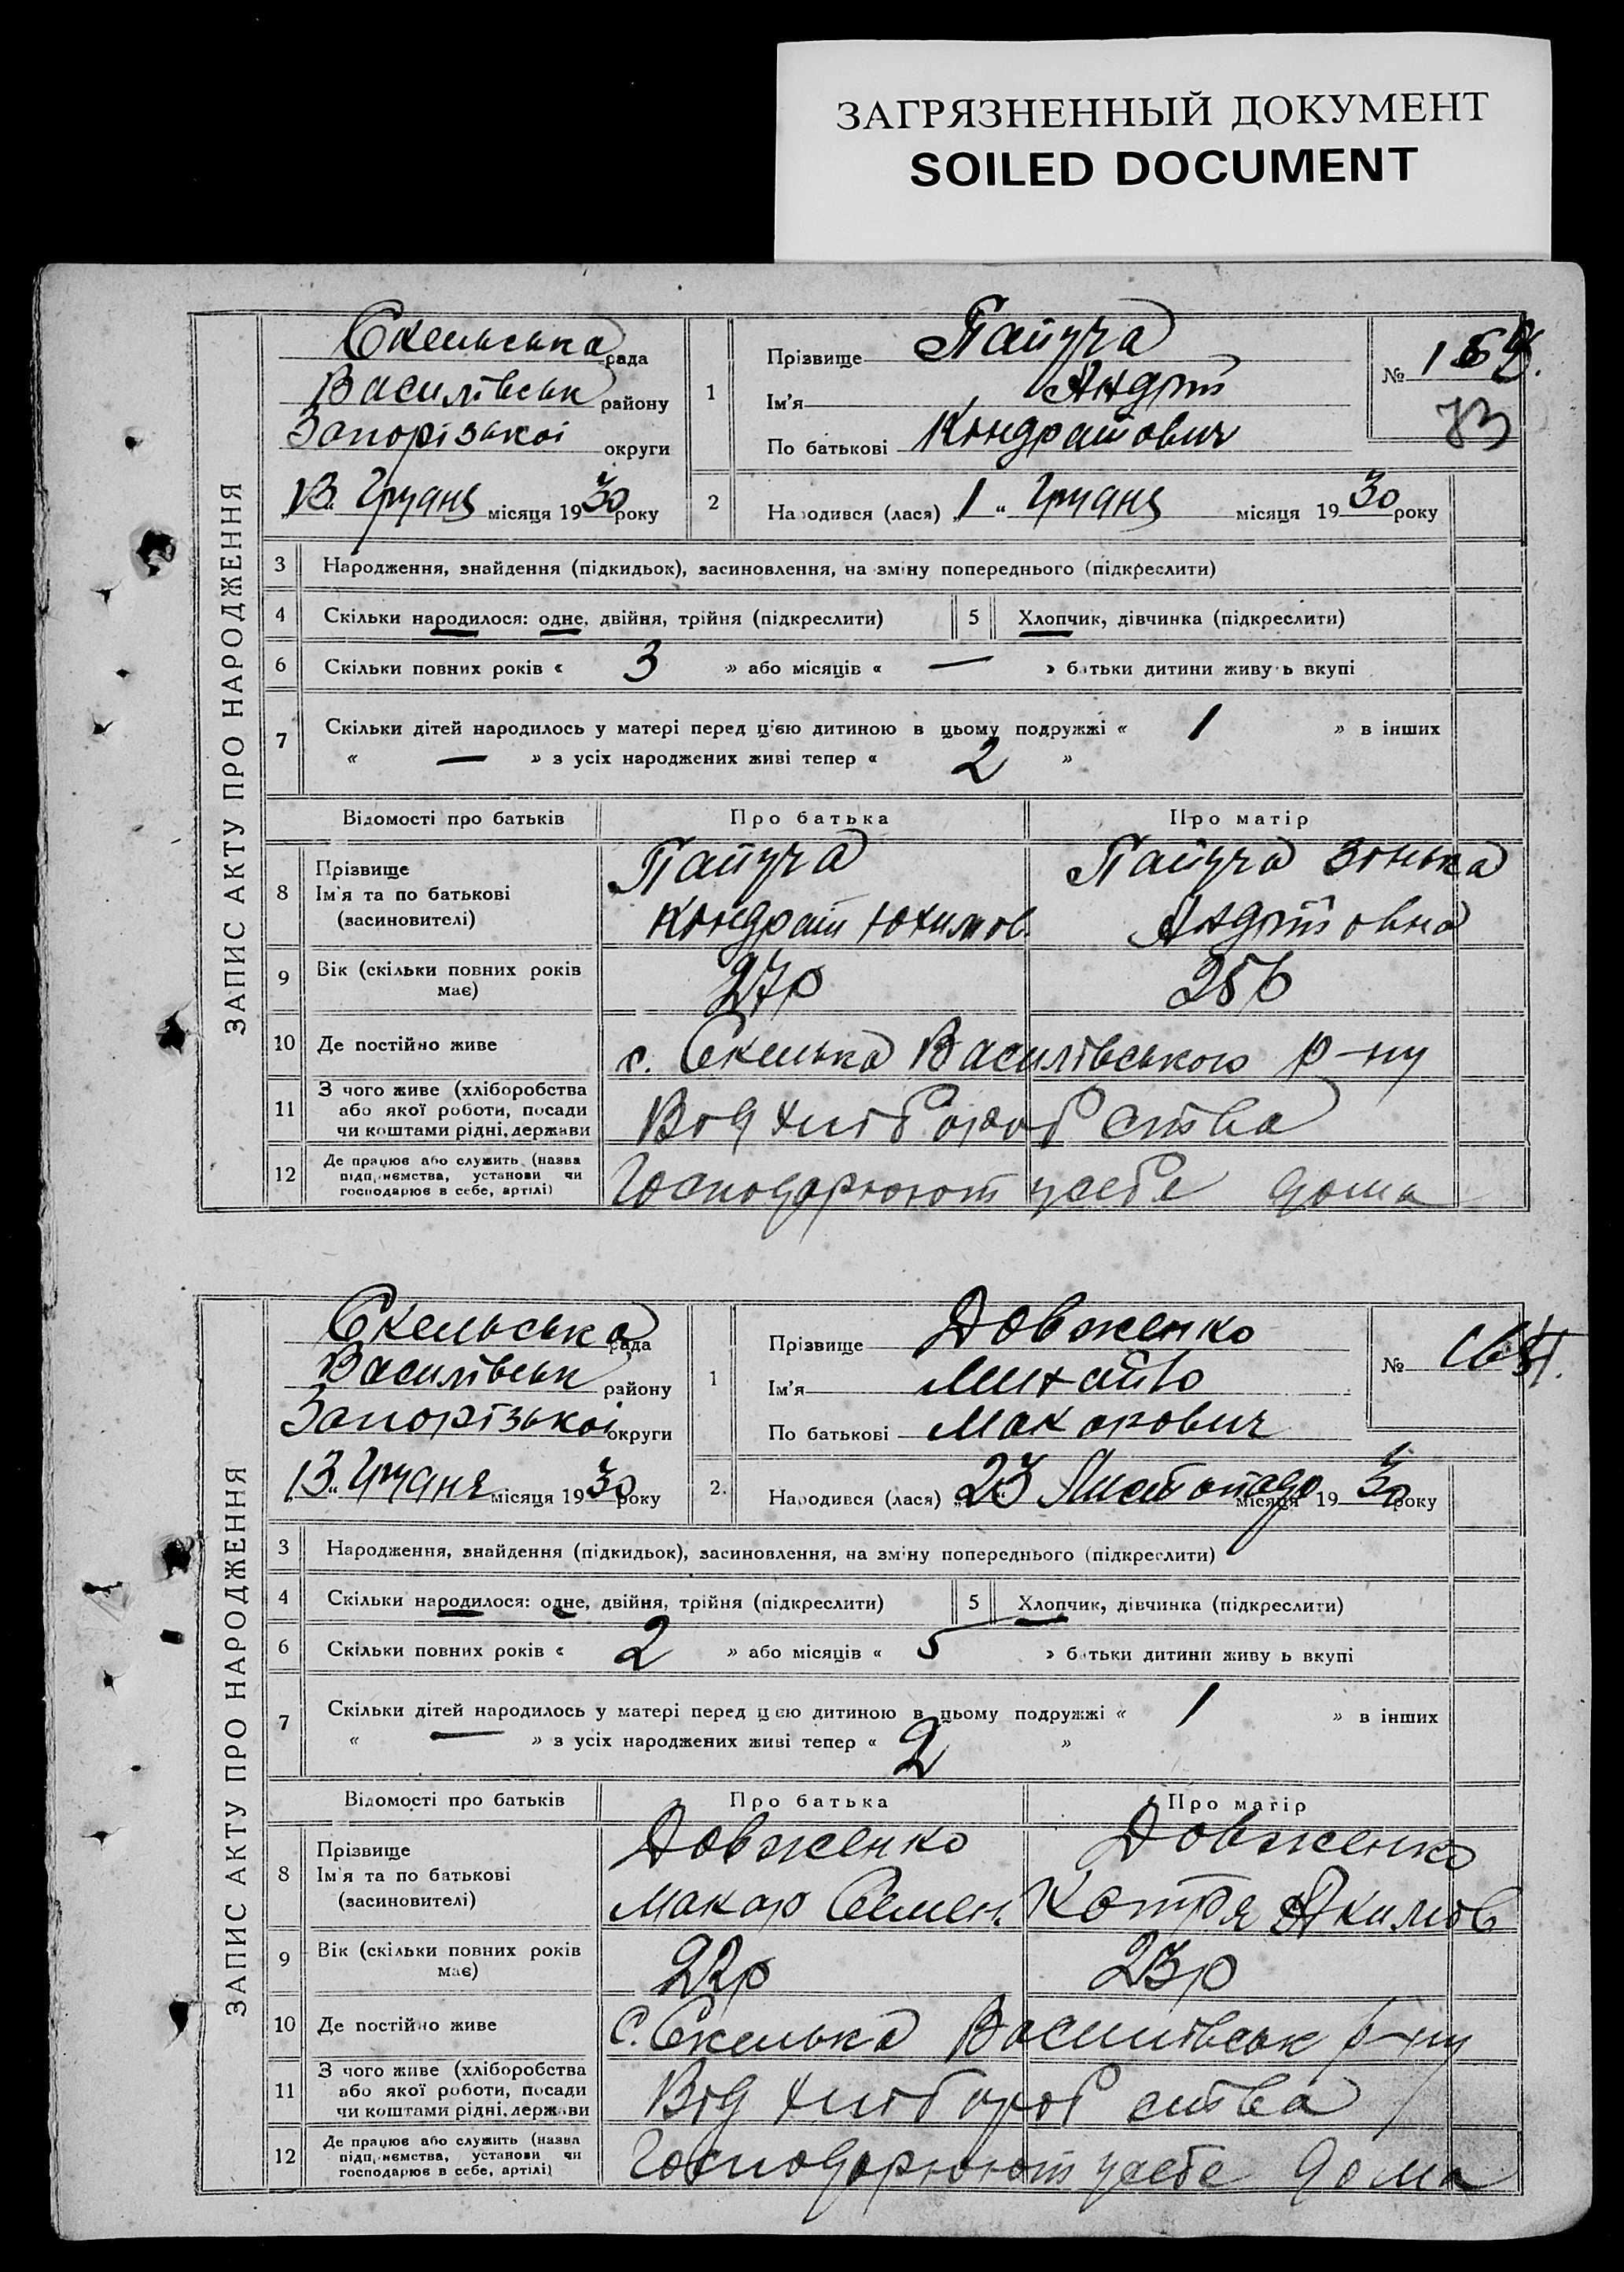 ЗАГРЯЗНЕННЫЙ ДОКУМЕНТ
SOILED DOCUMENT
ЗАПИС АКТУ ПРО НАРОДЖЕННЯ
Скельська рада
Василівськ району
Запорізькоі округи
„13“ Грудня місяця 1930 року
1 Прізвище Папуча
Ім'я Андрій
По батькові Кондратович
№
73
2 Народився (лася) „1“ Грудня місяця 1930 року
3 Народження, знайдення (підкидьок), засиновлення, на зміну попереднього (підкреслити)
4 Скільки народилося: одне, двійня, трійня (підкреслити) 5 Хлопчик, дівчинка (підкреслити)
6 Скільки повних років « 3 » або місяців « — » батьки дитини живуть вкупі
7 Скільки дітей народилось у матері перед цією дитиною в цьому подружжі « 1 » в інших
« — » з усіх народжених живі тепер « 2 »
Відомості про батьків Про батька Про матір
8 Прізвище
Ім'я та по батькові
(засиновителі)
Папуча
Кондрат Юхимов.
Папуча Зонька
Андріівна
9 Вік (скільки повних років
має)
27р 25
10 Де постійно живе с. Скелька Василівського р-ну
11 З чого живе (хліборобства
або якої роботи, посади
чи коштами рідні, держави
Від хліборобства
12 Де працює або служить (назва
підприємства, установи чи
господарює в себе, артілі)
Господарюют усебе дома
ЗАПИС АКТУ ПРО НАРОДЖЕННЯ
Скельська рада
Василівськ району
Запорізькоі округи
„13“ Грудня місяця 1930 року
1 Прізвище Довженко
Ім'я Михайло
По батькові Макарович
№
2. Народився (лася) „23“ Листопада місяця 1930 року
3 Народження, знайдення (підкидьок), засиновлення, на зміну попереднього (підкреслити)
4 Скільки народилося: одне, двійня, трійня (підкреслити) 5 Хлопчик, дівчинка (підкреслити)
6 Скільки повних років « 2 » або місяців « 5 » батьки дитини живу ь вкупі
7 Скільки дітей народилось у матері перед цією дитиною в цьому подружжі « 1 » в інших
« — » з усіх народжених живі тепер « 2 »
Відомості про батьків Про батька Про матір
8 Прізвище
Ім'я та по батькові
(засиновителі)
Довженко
Макар Семен.
Довженко
Котря Якимов
9 Вік (скільки повних років
має)
22р 23р
10 Де постійно живе с. Скелька Василівськ р-ну
11 З чого живе (хліборобства
або якої роботи, посади
чи коштами рідні, держави
Від хліборобства
12 Де працює або служить (назва
підприємства, установи чи
господарює в себе, артілі)
Господарюют усебе дома